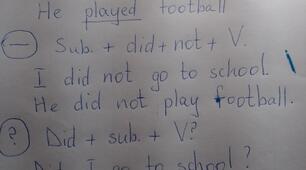 He played football
(-) Sub. + did + not + V.
I did not go to school.
He did not play football.
(?) Did + sub. + V?
Did I go to school?